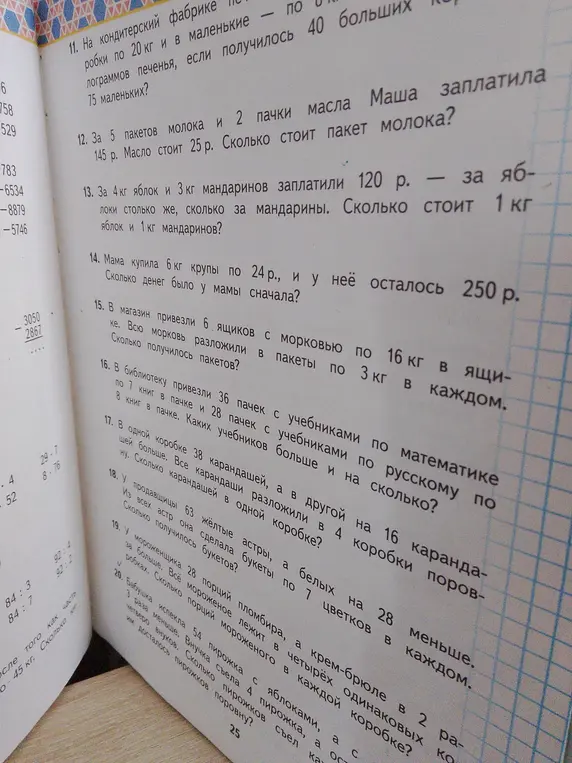 6
758
529
9783
−6534
−8879
−5746
3050
− 2867
....
. 4
. 52
29 · 7
8 · 76
84 : 3
84 : 7
92 : 4
92 : 2
после того как часть
45 кг. Сколько
11. На кондитерской фабрике
робки по 20 кг и в маленькие — по
лограммов печенья, если получилось 40 больших
75 маленьких?
12. За 5 пакетов молока и 2 пачки масла Маша заплатила
145 р. Масло стоит 25 р. Сколько стоит пакет молока?
13. За 4 кг яблок и 3 кг мандаринов заплатили 120 р. — за яб-
локи столько же, сколько за мандарины. Сколько стоит 1 кг
яблок и 1 кг мандаринов?
14. Мама купила 6 кг крупы по 24 р., и у неё осталось 250 р.
Сколько денег было у мамы сначала?
15. В магазин привезли 6 ящиков с морковью по 16 кг в ящи-
ке. Всю морковь разложили в пакеты по 3 кг в каждом.
Сколько получилось пакетов?
16. В библиотеку привезли 36 пачек с учебниками по математике
по 7 книг в пачке и 28 пачек с учебниками по русскому по
8 книг в пачке. Каких учебников больше и на сколько?
17. В одной коробке 38 карандашей, а в другой на 16 каранда-
шей больше. Все карандаши разложили в 4 коробки поров-
ну. Сколько карандашей в одной коробке?
18. У продавщицы 63 жёлтые астры, а белых на 28 меньше.
Из всех астр она сделала букеты по 7 цветков в каждом.
Сколько получилось букетов?
19. У мороженщика 28 порций пломбира, а крем-брюле в 2 ра-
за больше. Всё мороженое лежит в четырёх одинаковых ко-
робках. Сколько порций мороженого в каждой коробке?
20. Бабушка испекла 54 пирожка с яблоками, а с
3 раза меньше. Внучка съела 4 пирожка, а ос
четверо внуков. Сколько пирожков съел
им досталось пирожков поровну?
25